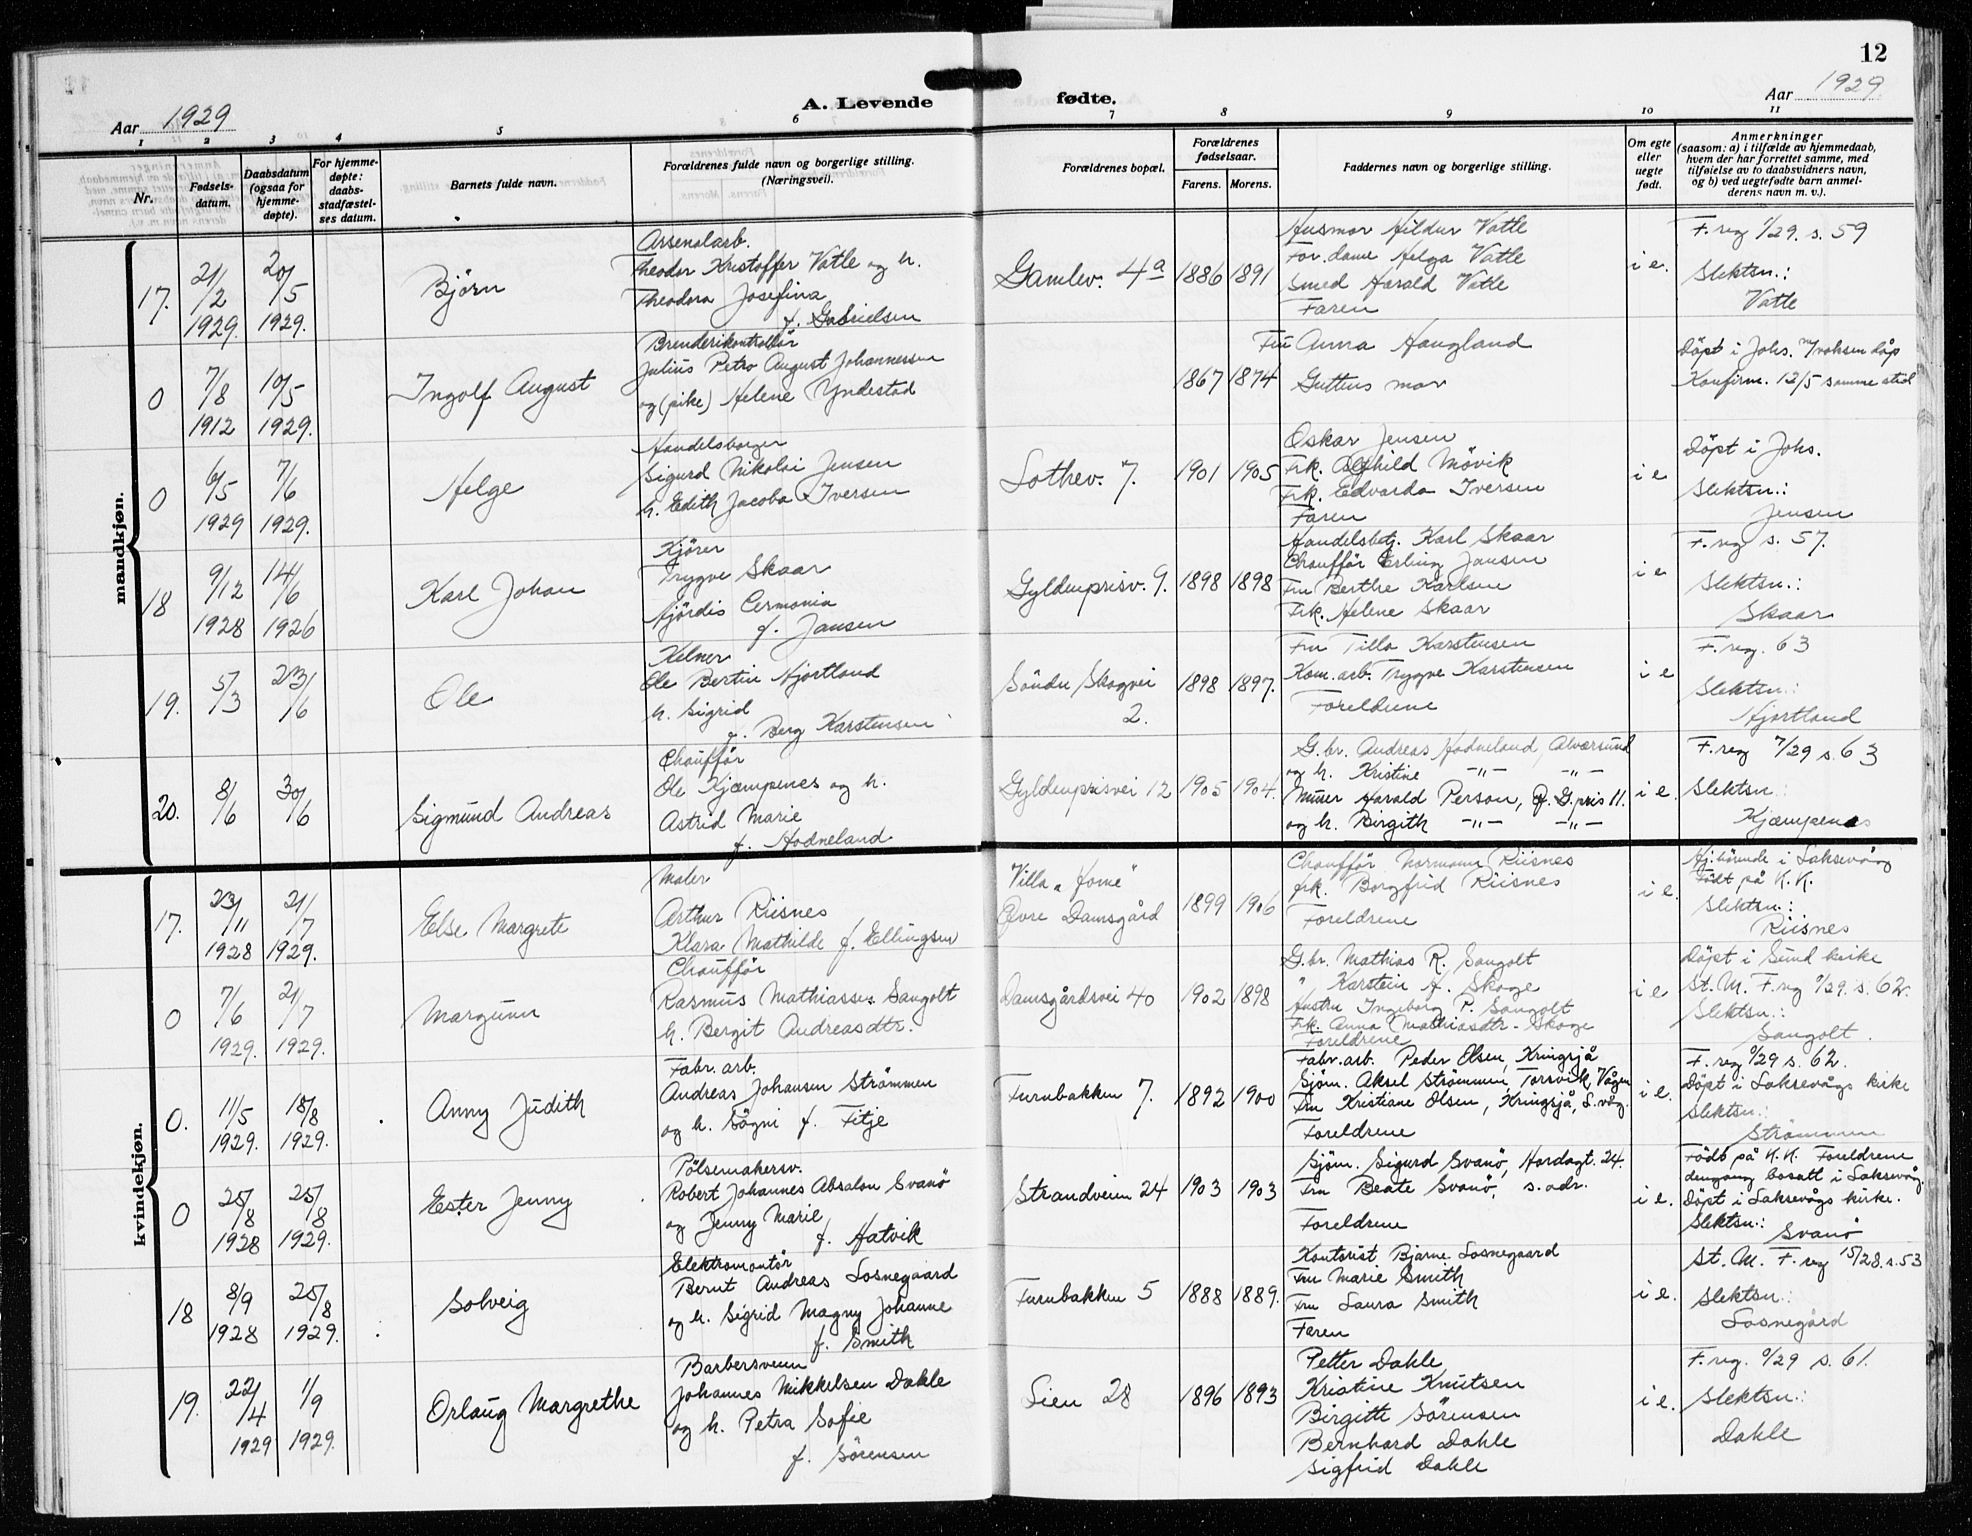 12
Aar 1929
A. Levende
fødte.
Aar 1929
1 2 3 4 5 6 7 8 9 10 11
Nr.
Fødsels-
datum.
Daabsdatum
(ogsaa for
hjemme-
døpte).
For hjemme-
døpte:
daabs-
stadfæstel-
ses datum.
Barnets fulde navn.
Forældrenes fulde navn og borgerlige stilling.
(Næringsvei).
Forældrenes bopæl.
Forældrenes
fødselsaar.
Farens. Morens.
Faddernes navn og borgerlige stilling.
Om egte
eller
uegte
født.
Anmerkninger
(saasom: a) i tilfælde av hjemmedaab,
hvem der har forrettet samme, med
tilføielse av to daabsvidners navn,
og b) ved uegtefødte barn anmel-
derens navn m. v.).
mandkjøn.
17.
21/2
1929.
20/5
1929.
Björn
Arsenalarb.
Theodor Kristoffer Vatle og h.
Theodora Josefina
f. Gabrielsen
Gamlev. 4a
1886 1891
Husmor Hildur Vatle
For. dame Helga Vatle
Smed Harald Vatle
Faren
i e.
F. reg 1/29. s. 59
Slektsn.:
Vatle
0
7/8
1912
10/5
1929.
Ingolf August
Brenderikontrollör
Julius Petro August Johannessen
og (pike) Helene Yndestad
1867 1874
Fru Anna Haugland
Guttens mor
Döpt i Johs. m/voksen dåp
Konfirm. 12/5 samme sted
0
6/5
1929
7/6
1929.
Helge
Handelsborger
Sigurd Nikolai Jensen
h. Edith Jacoba Iversen
Lothev. 7.
1901 1905
Oskar Jensen
Frk. Alfhild Mövik
Frk. Edvarda Iversen
Faren
i e
Döpt i Johs.
Slektsn.:
Jensen
18
9/12
1928
14/6
1926
Karl Johan
Kjörer
Trygve Skaar
Hjördis Cermonia
f. Jansen
Gyldenprisv. 9.
1898 1898
Handelsbetj. Karl Skaar
Chaufför Erling Jansen
Fru Berthe Karlsen
Frk. Helene Skaar
i e
F. reg s. 57.
Slektsn.:
Skaar
19.
5/3
23/6
Ole
Kelner
Ole Bertin Hjortland
h. Sigrid
f. Berg Karstensen
Söndre Skogvei
2.
1898 1897.
Fru Tilla Karstensen
Kom. arb. Trygve Karstensen
Foreldrene
i e
F. reg. 63
Slektsn.:
Hjortland
20.
8/6
30/6
Sigmund Andreas
Chaufför
Ole Kjæmpenes og h.
Astrid Marie
f. Hodneland
Gyldenprisvei 12
1905 1904.
G.br. Andreas Hodneland, Alværsund
og h. Kristine -"- -"-
Murer Harald Person, G. pris 11.
og h. Birgith -"- -"-
i e.
F. reg 7/29 s. 63
Slektsn.:
Kjæmpenes
kvindekjøn.
17.
23/11
1928
21/7
1929.
Else Margrete
Maler
Arthur Riisnes
Klara Mathilde f. Ellingsen
Villa "Home"
Övre Damsgård
1899 1906
Chaufför Normann Riisnes
frk. Borgfrid Riisnes
Foreldrene
i e.
Hj. hörende i Laksevåg
Födt på K.K.
Slektsn.:
Riisnes
0
7/6
1929.
21/7
1929.
Margunn
Chaufför
Rasmus Mathiassen Sangolt
h. Bergit Andreasdtr.
Damsgårdsvei 40
1902 1898
G.br. Mathias R. Sangolt
" Karstein A. Skoge
Hustru Ingeborg P. Sangolt
Frk. Anna Mathiasdtr. Skoge
Foreldrene
i e
Döpt i Sund kirke
St. M. F. reg 9/29. s. 62.
Slektsn.:
Sangolt.
0.
11/5
1929.
18/8
1929.
Anny Judith
Fabr. arb.
Andreas Johansen Strömmen
og h. Sögni f. Fitje
Furubakken 7.
1892 1900
Fabr. arb. Peder Olsen, Kringsjå
Sjöm. Aksel Strömmen, Torsvik, Vågen
Fru Kristiane Olsen, Kringsjå, L.våg.
Foreldrene
i e.
F. reg 9/29 s. 62.
Döpt i Laksevågs kirke
Slektsn.:
Strömmen
0
25/8
1928
25/8
1929.
Ester Jenny
Pölsemakersv.
Robert Johannes Absalon Svanö
og Jenny Marie
f. Hatvik
Strandveien 24
1903 1903
Sjöm. Sigurd Svanö, Hardagt. 24.
Fru Beate Svanö, s. adr.
Foreldrene
i e.
Födt på K.K. Foreldrene
dengang bosatt i Laksevåg.
Döpt i Laksevågs kirke.
Slektsn.:
Svanö
18
8/9
1928
25/8
1929.
Solveig
Elektromontör
Bernt Andreas Losnegaard
og h. Sigrid Magny Johanne
f. Smith
Furubakken 5
1888 1889.
Kontorist Bjarne Losnegaard
Fru Marie Smith
Fru Laura Smith
Faren
i e.
St. M. F. reg 15/28. s. 53
Slektsn.:
Losnegård
19.
22/4
1929
1/9
1929.
Orlaug Margrethe
Barbersvenn
Johannes Mikkelsen Dahle
og h. Petra Sofie
f. Sörensen
Lien 28
1896 1893
Petter Dahle
Kristine Knutsen
Birgitte Sörensen
Bernhard Dahle
Sigfrid Dahle
i e.
F. reg. 9/29 s. 61.
Slektsn.:
Dahle